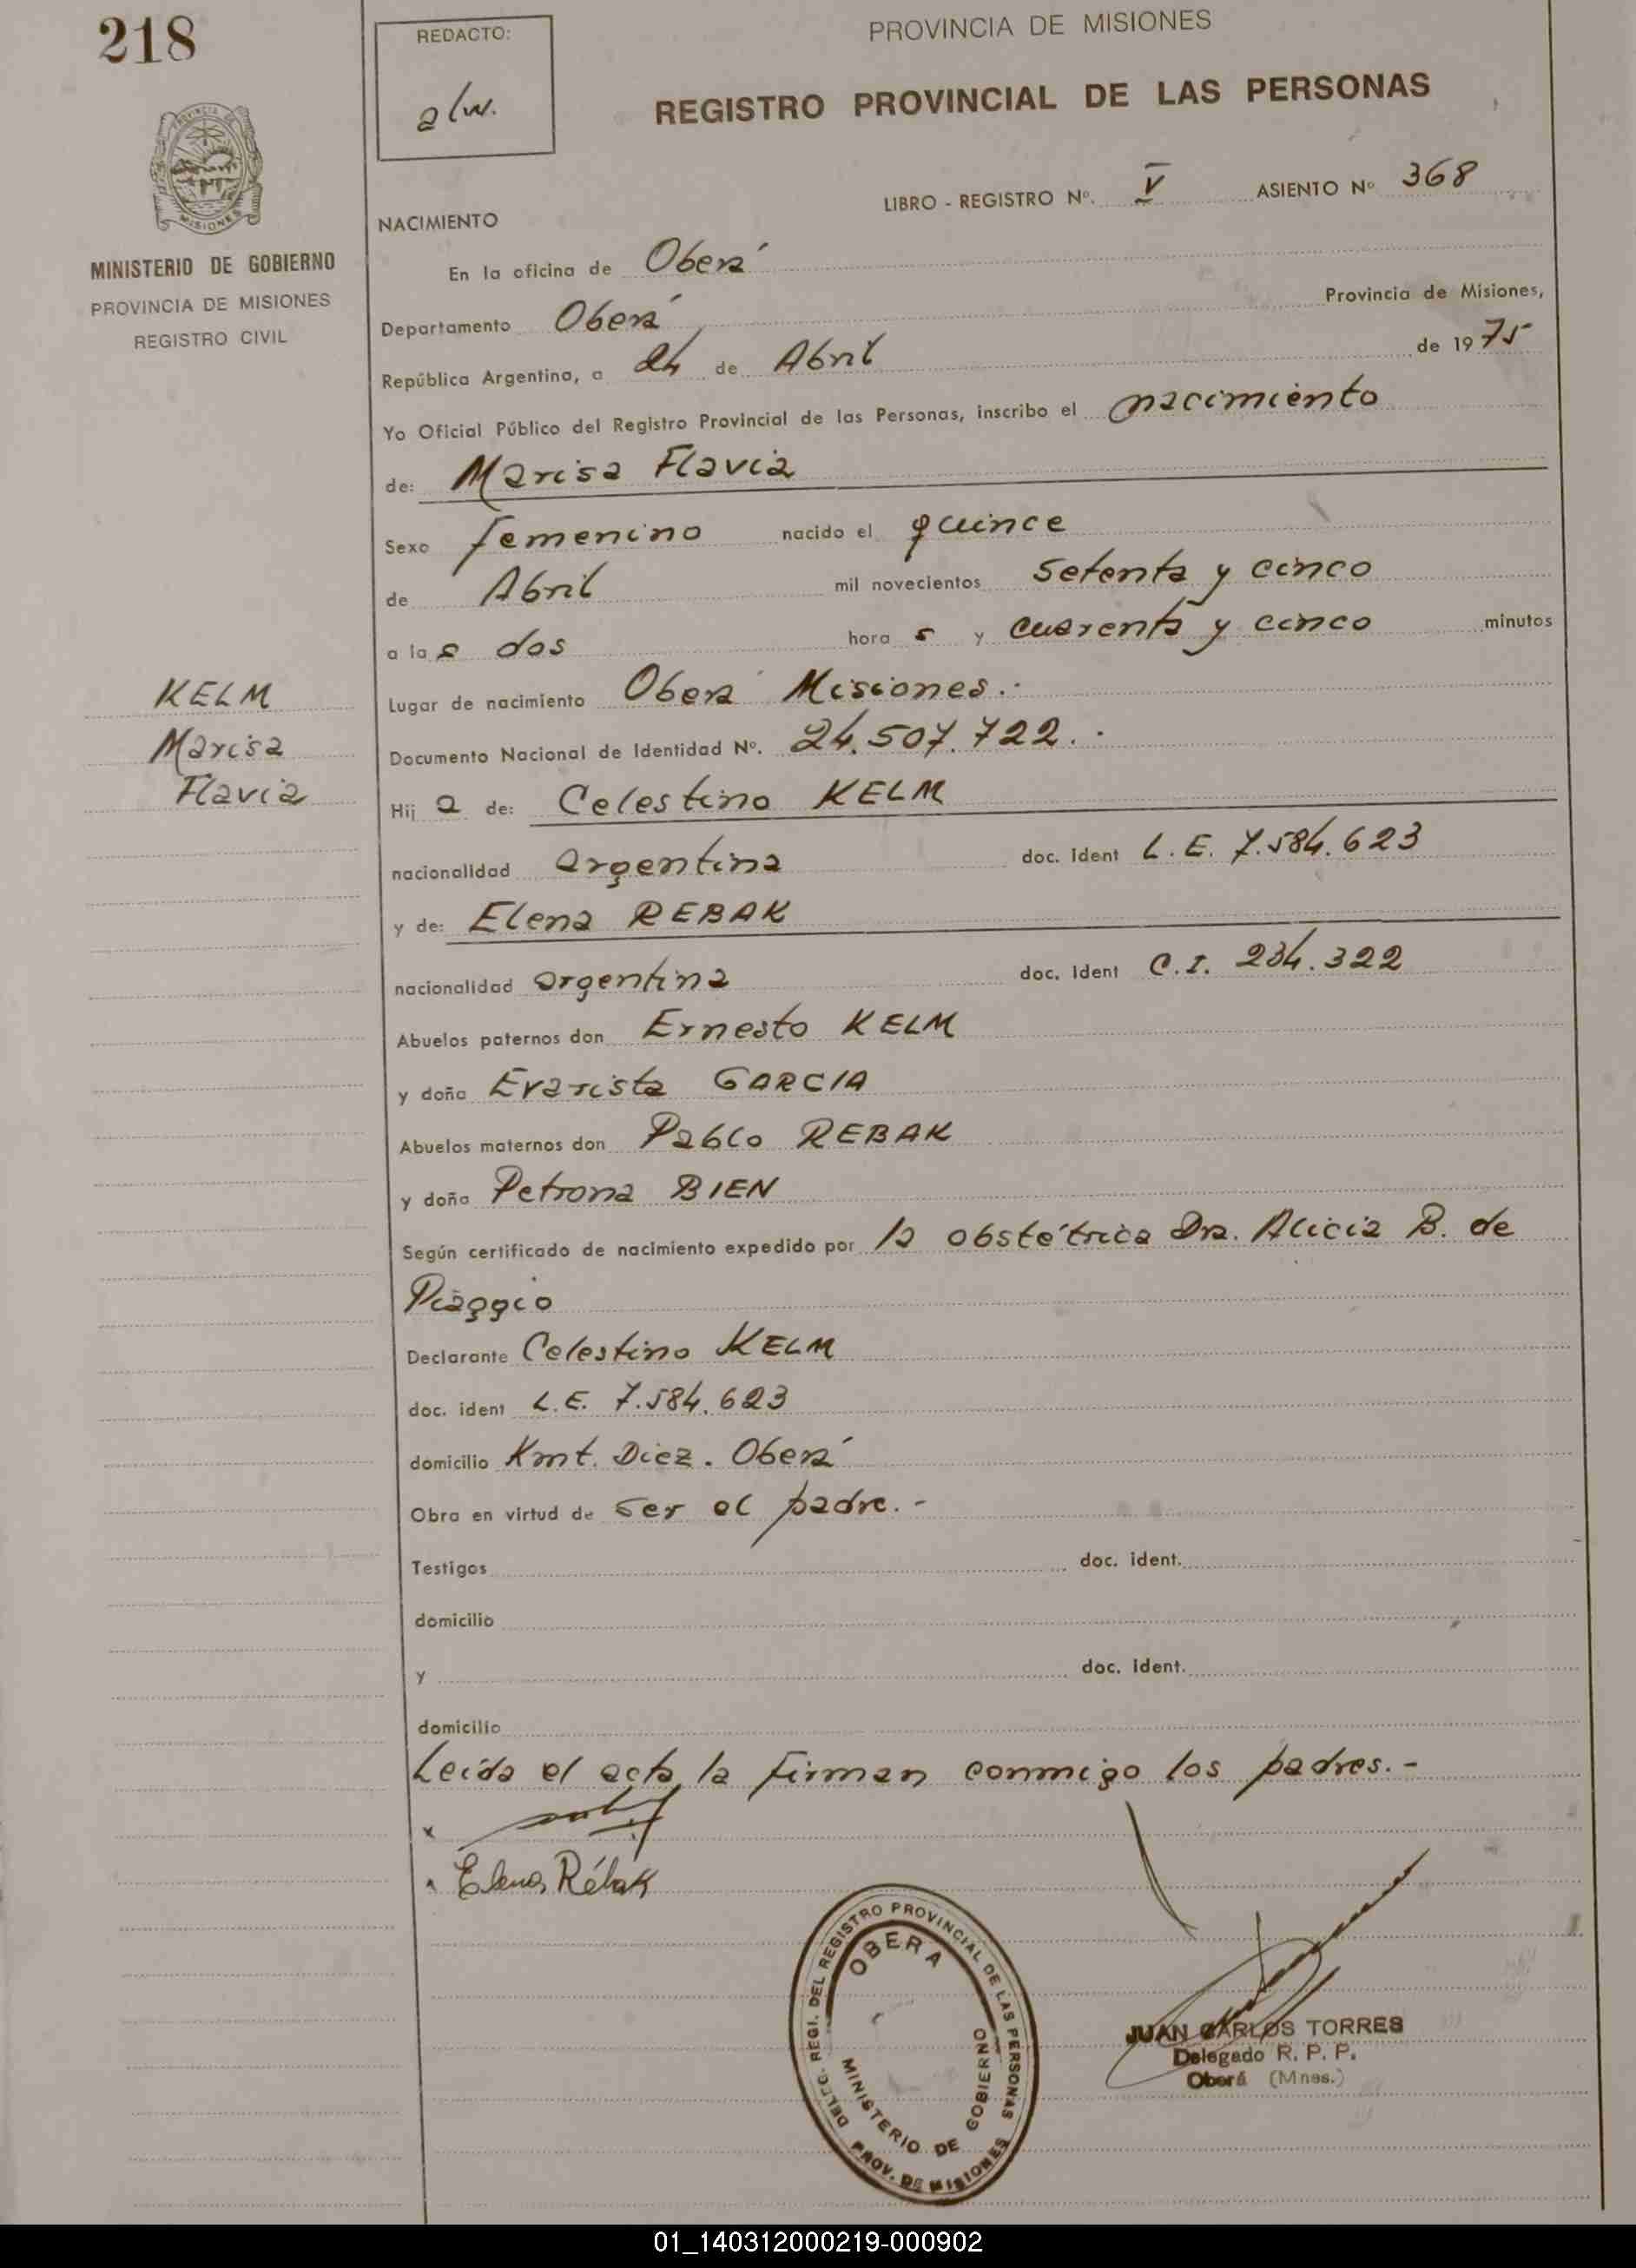 218
REDACTO:
a/w.
PROVINCIA DE MISIONES
REGISTRO PROVINCIAL DE LAS PERSONAS
PROVINCIA DE
MISIONES
MINISTERIO DE GOBIERNO
PROVINCIA DE MISIONES
REGISTRO CIVIL
LIBRO - REGISTRO Nº. V ASIENTO Nº 368
NACIMIENTO
En la oficina de Oberá
Departamento Oberá Provincia de Misiones,
República Argentina, a 24 de Abril de 1975
Yo Oficial Público del Registro Provincial de las Personas, inscribo el nacimiento
de: Marisa Flavia
Sexo femenino nacido el quince
de Abril mil novecientos setenta y cinco
a las dos horas y cuarenta y cinco minutos
KELM
Marisa
Flavia
Lugar de nacimiento Oberá Misiones.-
Documento Nacional de Identidad Nº. 24.507.722.-
Hija de: Celestino KELM
nacionalidad argentina doc. ident L.E. 7.584.623
y de: Elena REBAK
nacionalidad argentina doc. ident C.I. 234.322
Abuelos paternos don Ernesto KELM
y doña Evarista GARCIA
Abuelos maternos don Pablo REBAK
y doña Petrona BIEN
Según certificado de nacimiento expedido por la obstétrica Dra. Alicia B. de
Piaggio
Declarante Celestino KELM
doc. ident L.E. 7.584.623
domicilio Kmt. Diez. Oberá
Obra en virtud de ser el padre.-
Testigos doc. ident.
domicilio
y doc. ident.
domicilio
Leída el acta, la firman conmigo los padres.-
x
Elena Rébak
DELEG. REGI. DEL REGISTRO PROVINCIAL DE LAS PERSONAS
OBERA
MINISTERIO DE GOBIERNO
PROV. DE MISIONES
JUAN CARLOS TORRES
Delegado R. P. P.
Oberá (Mnes.)
01_140312000219-000902